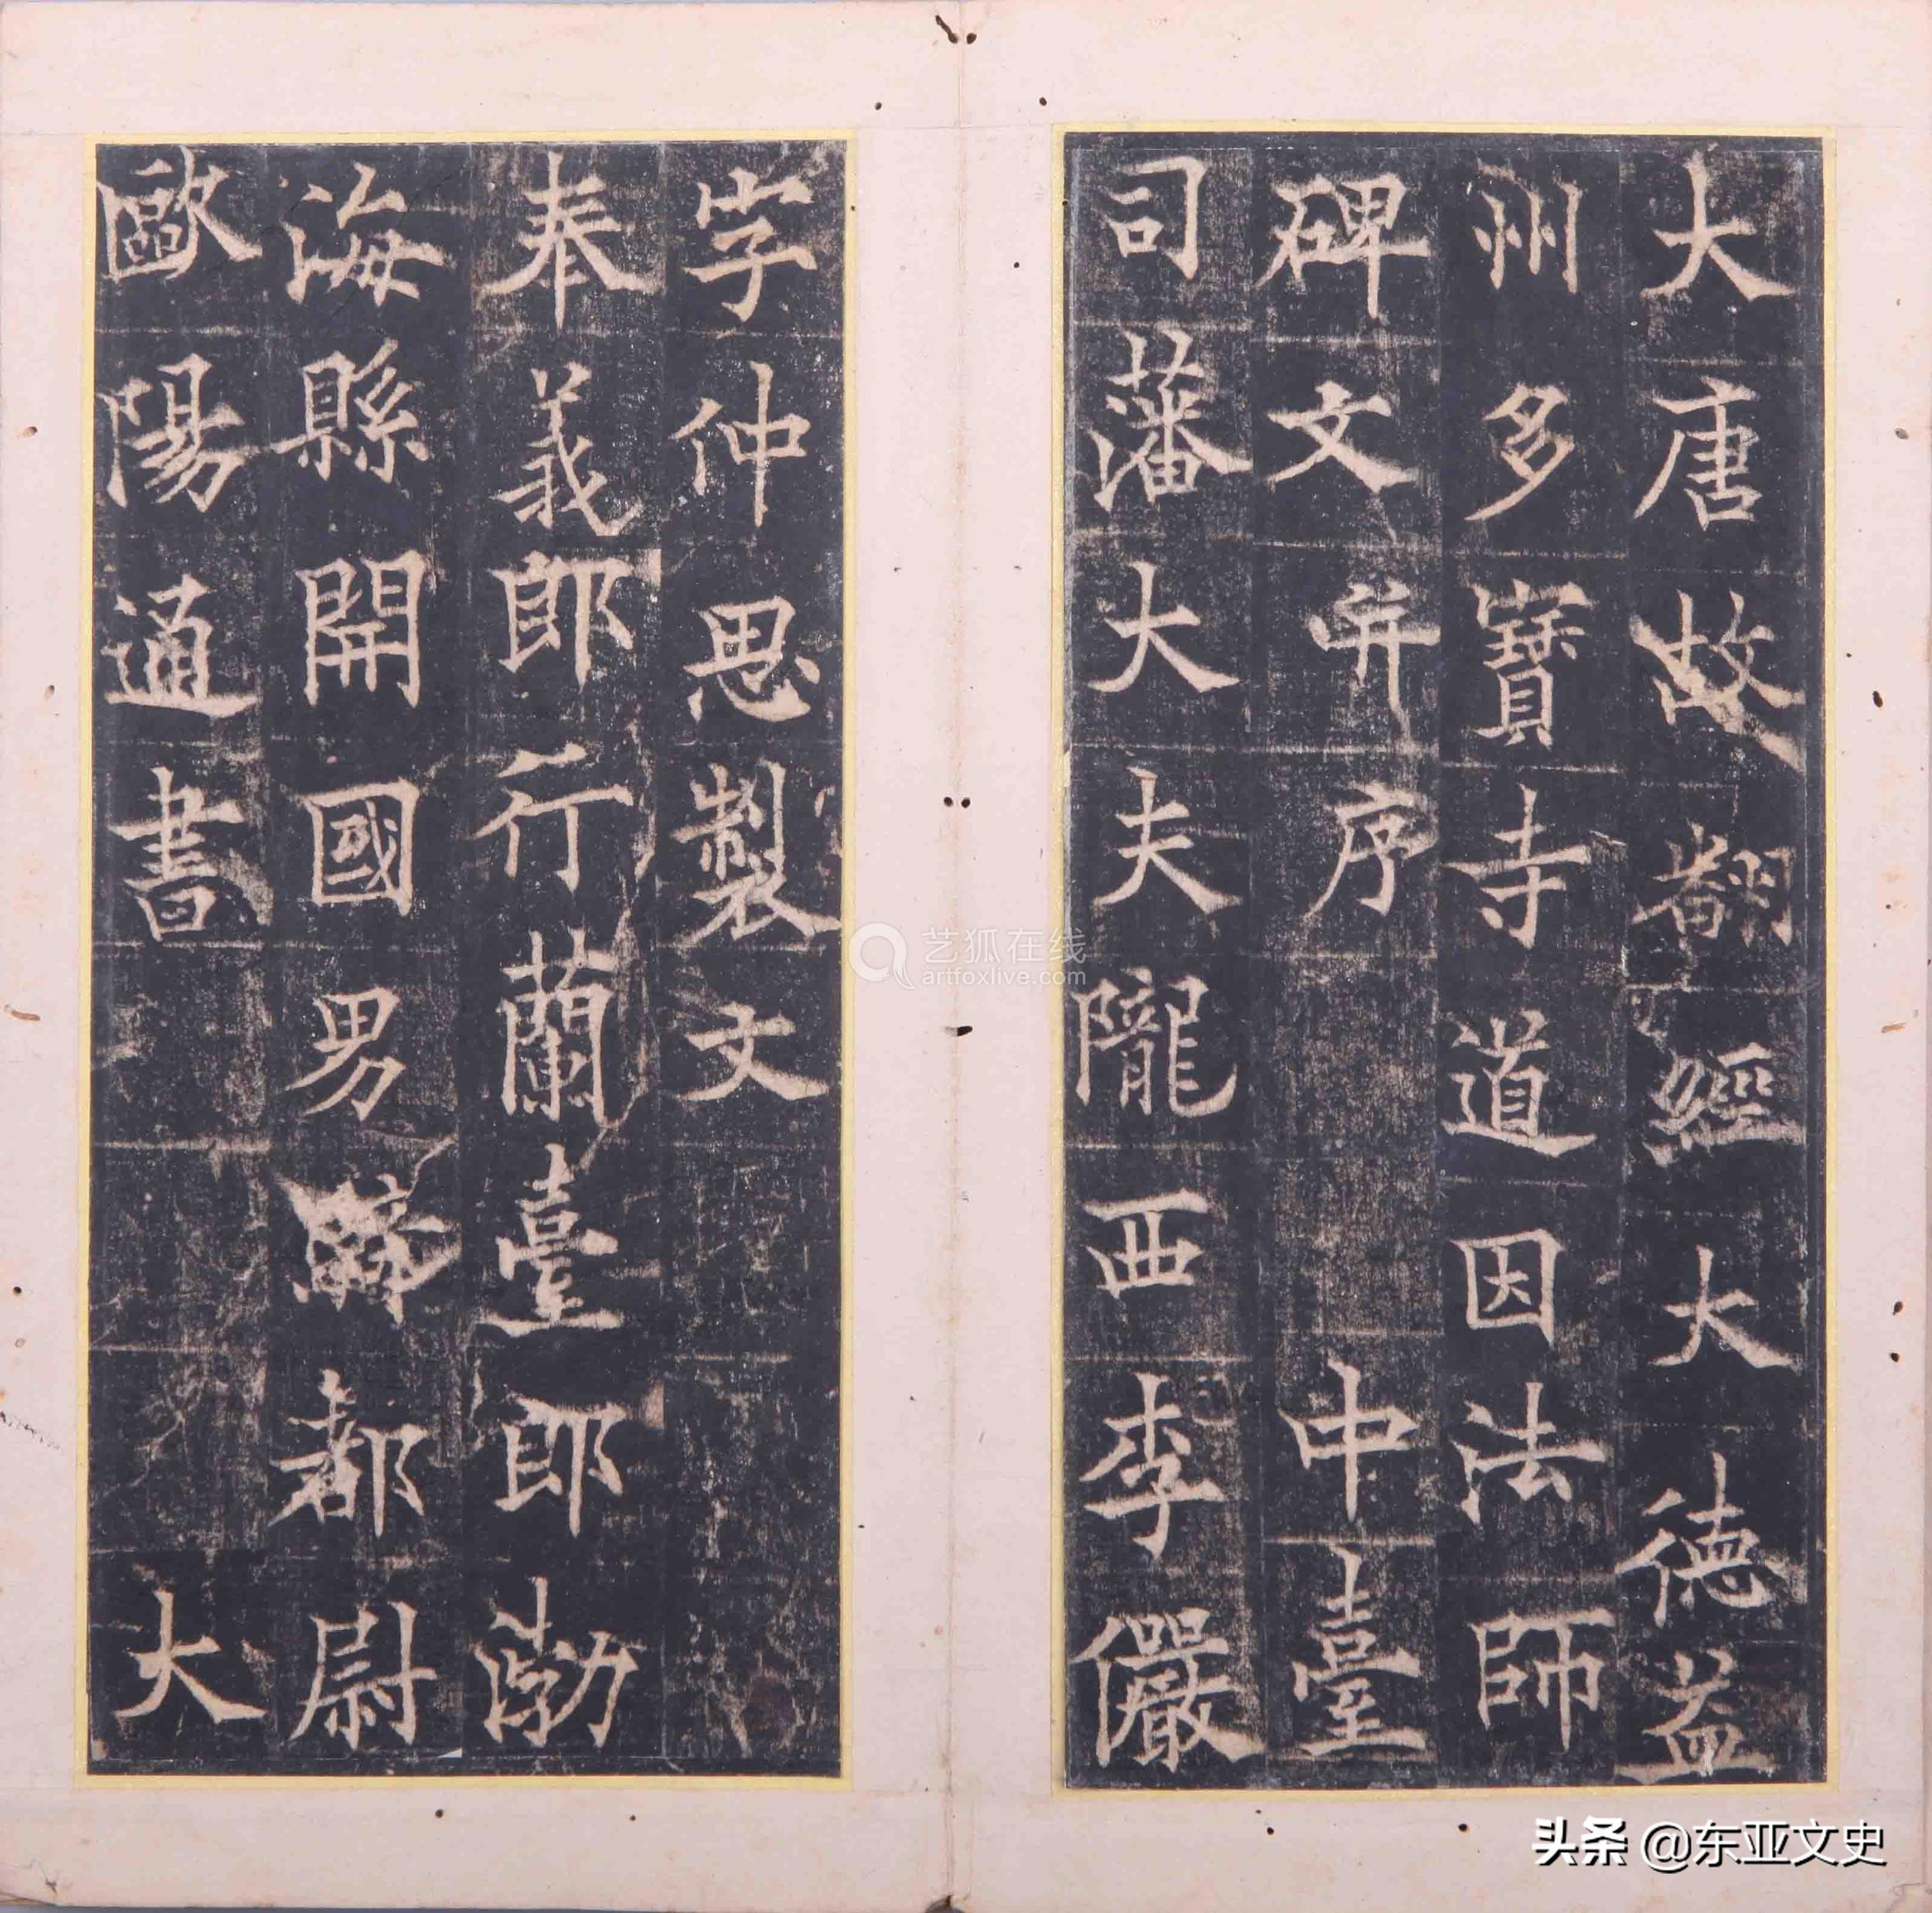 大唐故翻經大德益
州多寶寺道因法師
碑文并序 中臺
司藩大夫隴西李儼
字仲思製文
奉義郎行蘭臺郎渤
海縣開國男騎都尉
歐陽通書 大
艺狐在线
artfoxlive.com
头条 @东亚文史